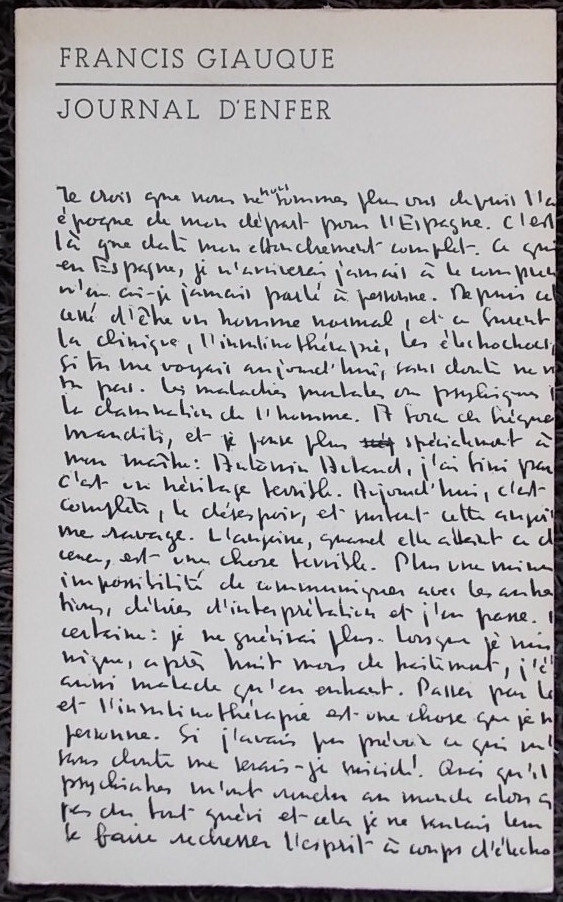 FRANCIS GIAUQUE
JOURNAL D'ENFER
Je crois que nous ne nous sommes plus vus depuis l'a
époque de mon départ pour l'Espagne. C'est
là que date mon effondrement complet. Ce qui
en Espagne, je n'arriverai jamais à le compren
n'en ai-je jamais parlé à personne. Depuis ce
cessé d'être un homme normal, et ce furent
la clinique, l'insulinothérapie, les électrochocs,
Si tu me voyais aujourd'hui, sans doute ne m
tu pas. Les maladies mentales ou psychiques
la damnation de l'homme. A force de
maudits, et je pense plus spécialement à
mon maître: Antonin Artaud, j'ai fini par
C'est un héritage terrible. Aujourd'hui, c'est
complète, le désespoir, et surtout cette angoi
me ravage. L'angoisse, quand elle atteint ce d
est une chose terrible. Plus une
impossibilité de communiquer avec les autre
délires d'interprétation et j'en passe.
certaine: je ne guérirai plus. Lorsque je suis
nique, après huit mois de traitement, j'é
aussi malade qu'en entrant. Passer par l
et l'insulinothérapie est une chose que je
personne. Si j'avais pu prévoir ce qui m'
sans doute me serais-je suicidé. Quoi qu'il
psychiatres m'ont rendu au monde alors
pas du tout guéri et cela je ne saurais leur
se faire redresser l'esprit à coups d'électro